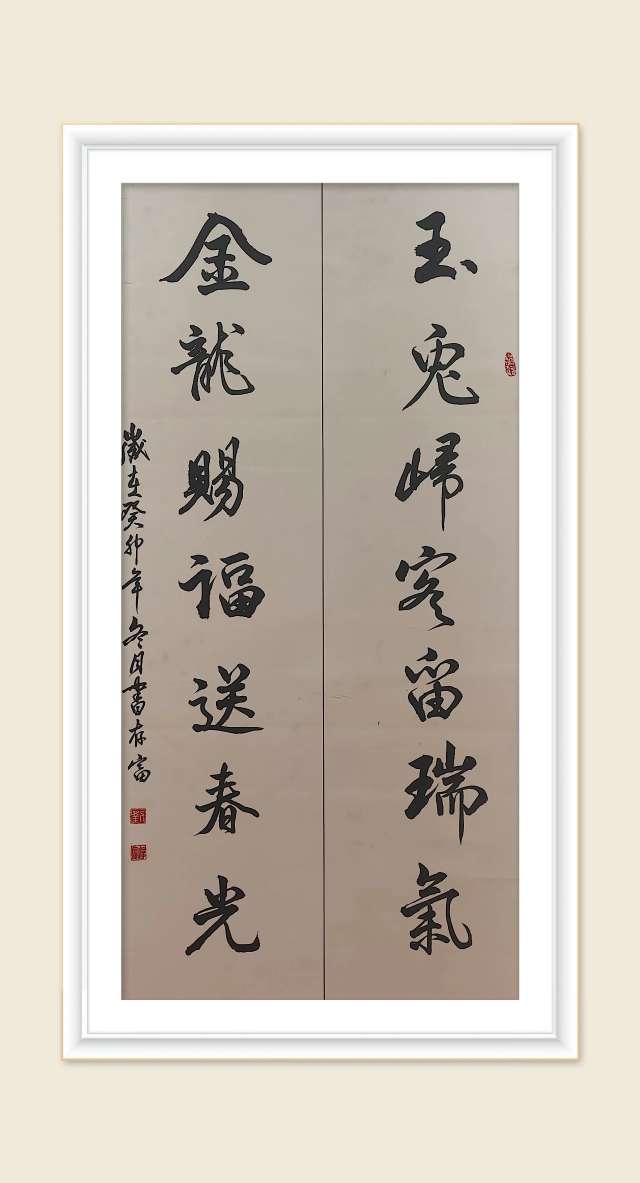 玉兔歸客留瑞氣
金龍賜福送春光
歲在癸卯年冬月書存富